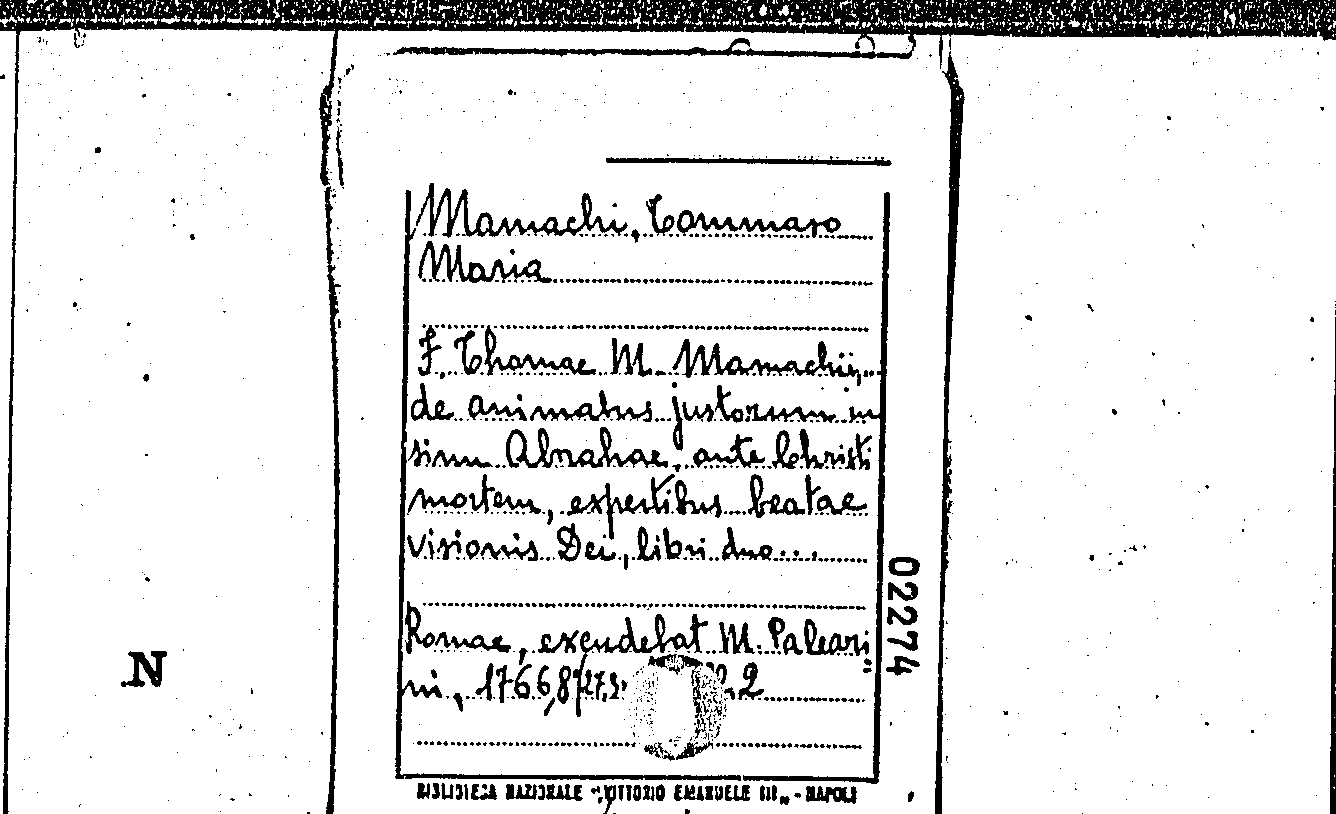 Mamachi, Tommaso
Maria
F. Thomae M. Mamachii,..
de animabus justorum in
sinu Abrahae, ante Christi
mortem, expertibus beatae
visionis Dei, libri duo...
Romae, excudebat M. Paleari=
ni, 1766, 8/
2
02274
N
BIBLIOTECA NAZIONALE "VITTORIO EMANUELE III" - NAPOLI